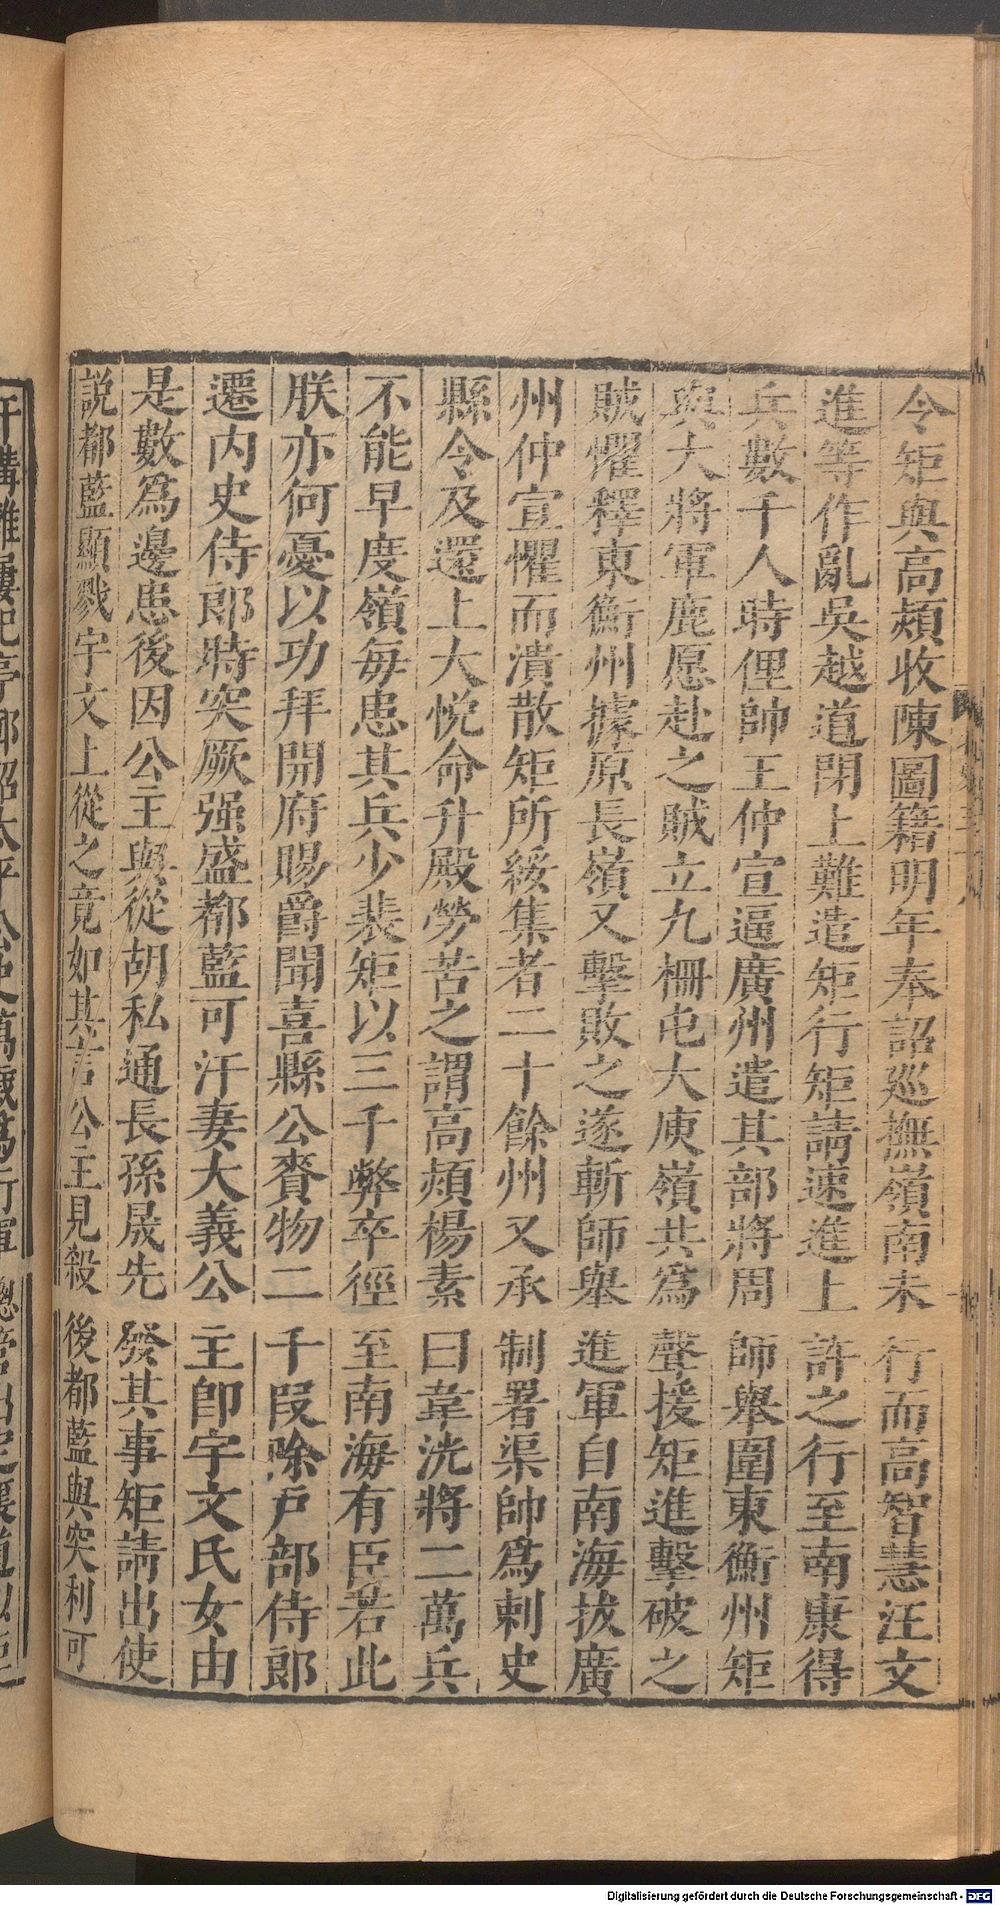 令矩與高熲收陳圖籍明年奉詔巡撫嶺南未行而高智慧汪文
進等作亂吳越道閉上難遣矩行矩請速進上許之行至南康得
兵數千人時俚帥王仲宣逼廣州遣其部將周師舉圍東衡州矩
與大將軍鹿愿赴之賊立九柵屯大庾嶺共爲聲援矩進擊破之
賊懼釋東衡州據原長嶺又擊敗之遂斬師舉進軍自南海拔廣
州仲宣懼而潰散矩所綏集者二十餘州又承制署渠帥爲刺史
縣令及還上大悅命升殿勞苦之謂高熲楊素曰韋洸將二萬兵
不能早度嶺每患其兵少裴矩以三千弊卒徑至南海有臣若此
朕亦何憂以功拜開府賜爵聞喜縣公賚物二千段除戶部侍郎
遷內史侍郎時突厥强盛都藍可汗妻大義公主卽宇文氏女由
是數爲邊患後因公主與從胡私通長孫晟先發其事矩請出使
說都藍顯戮宇文上從之竟如其言公主見殺後都藍與突利可
汗構難屢犯亭鄣詔太平公史萬歲爲行軍總管出定襄道以矩
Digitalisierung gefördert durch die Deutsche Forschungsgemeinschaft - DFG